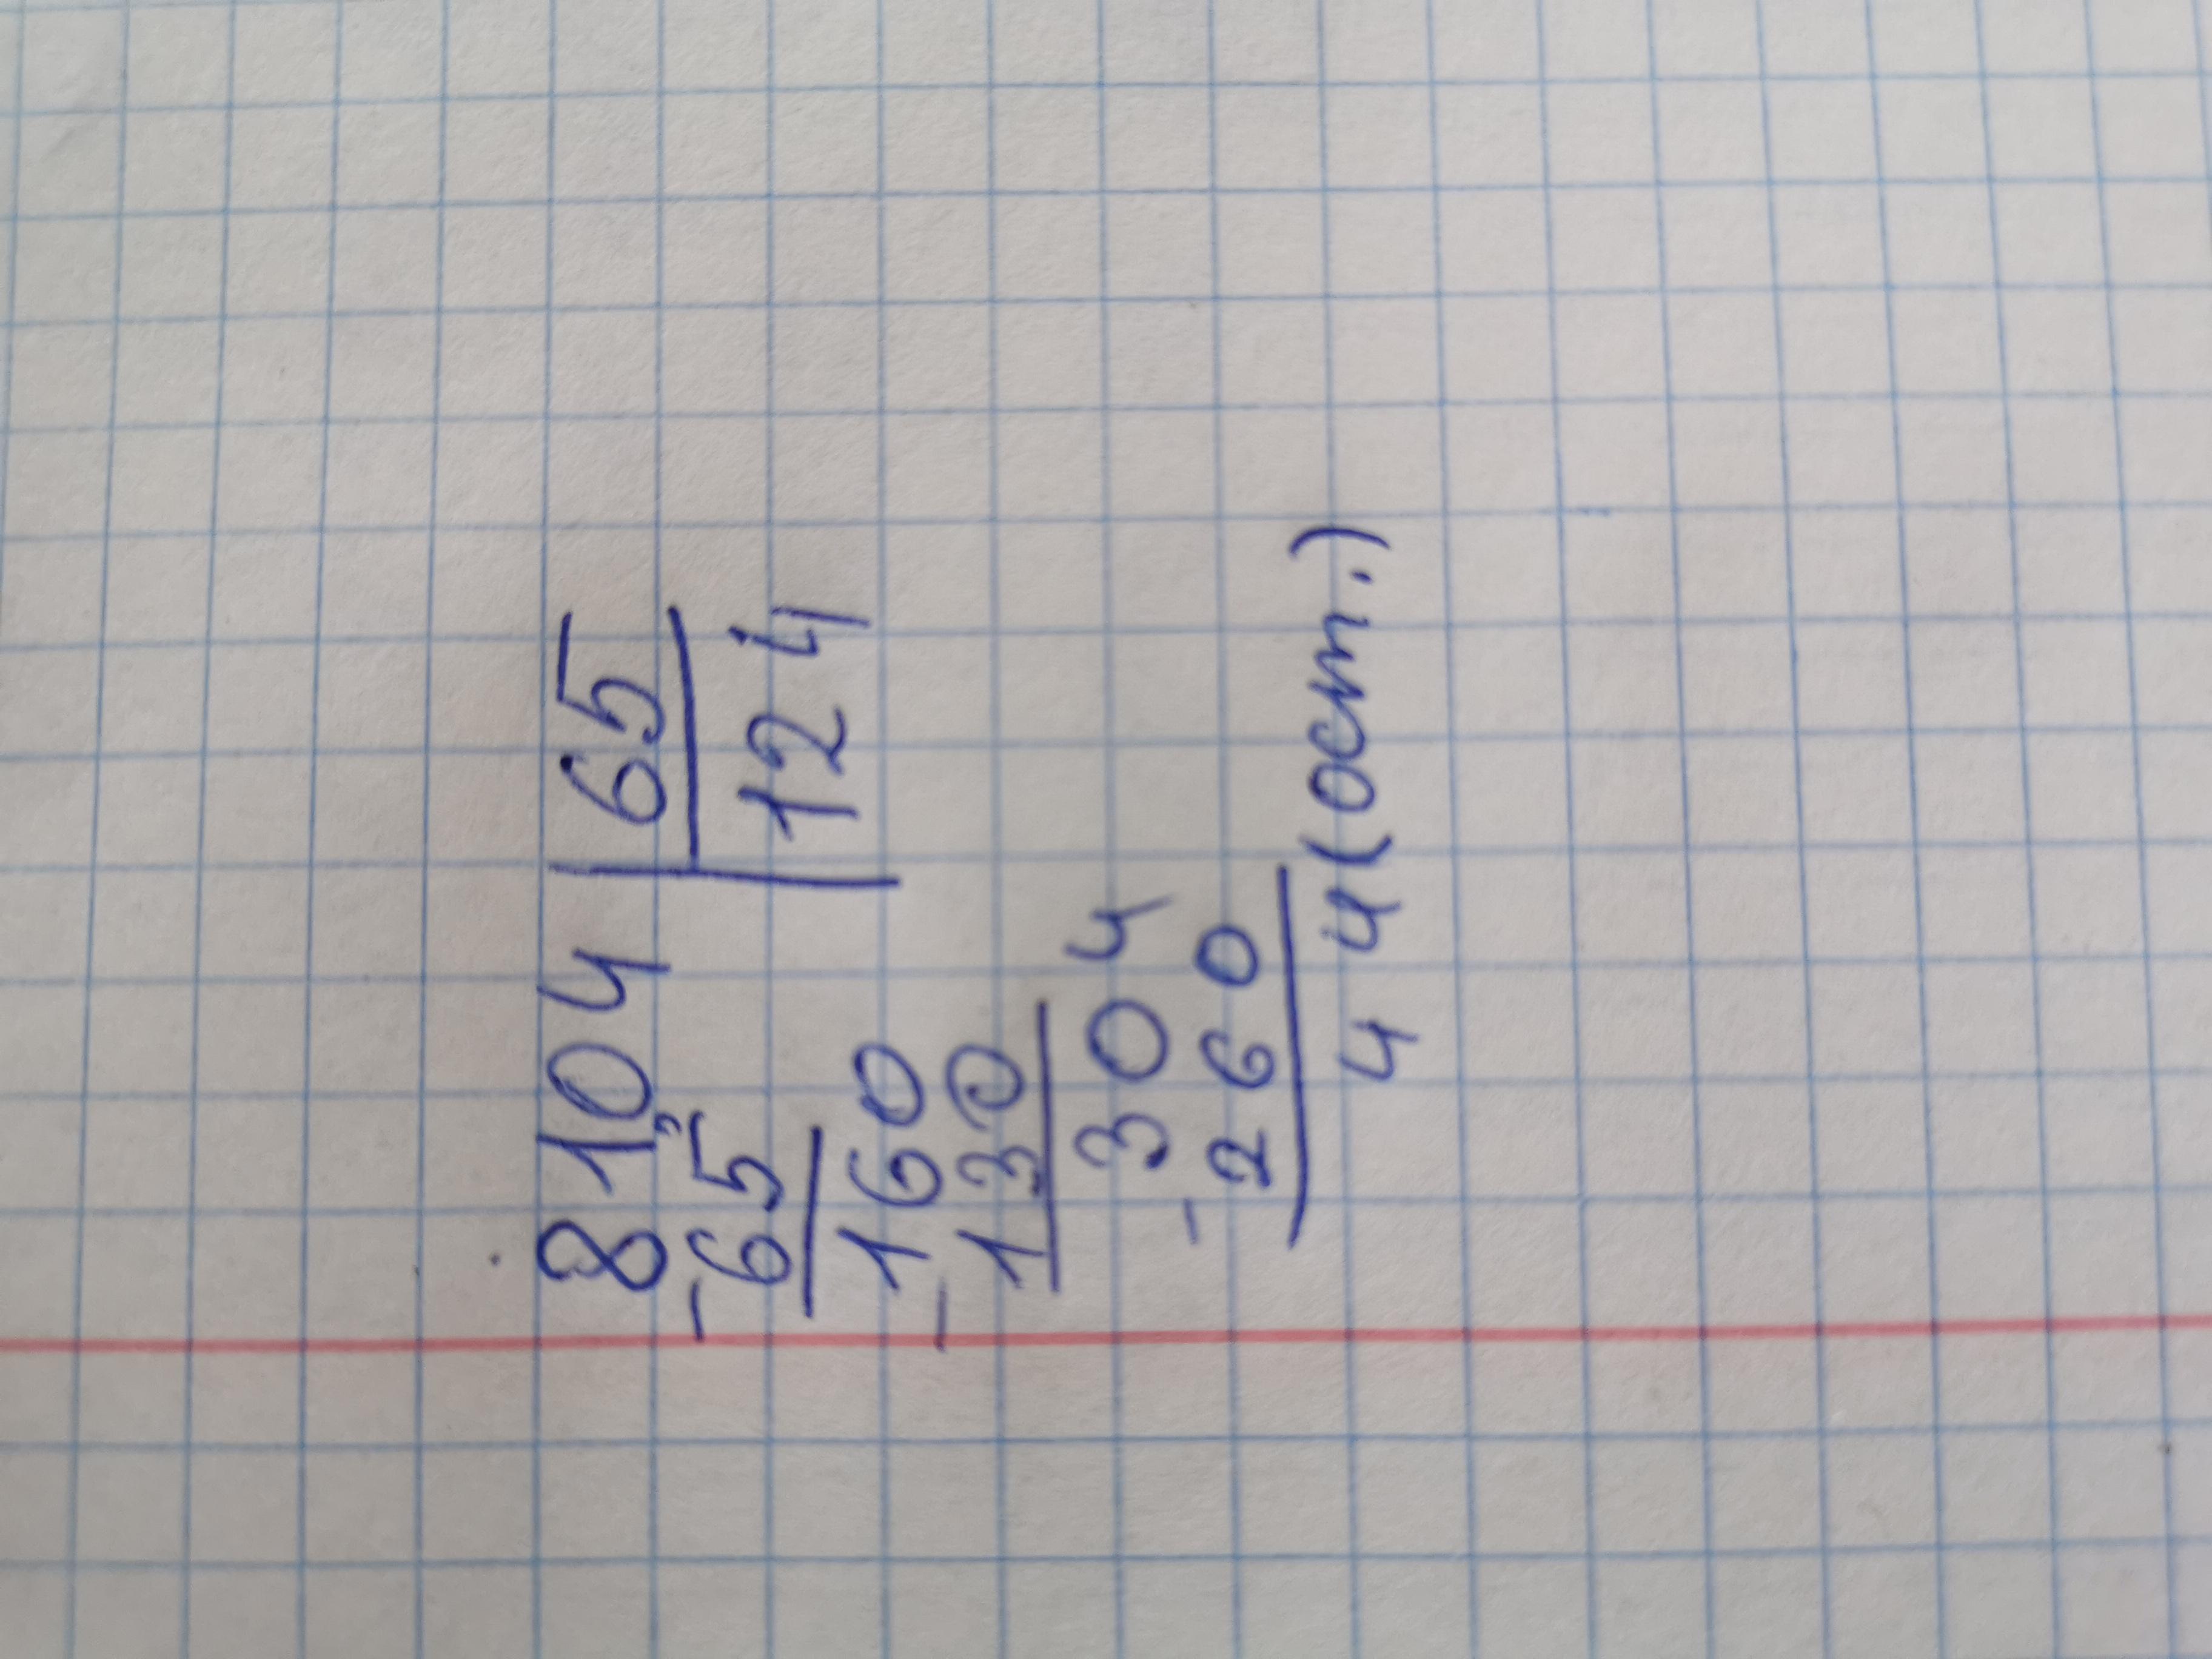 8104|65
-65 124
-160
130
-304
260
44(ост.)